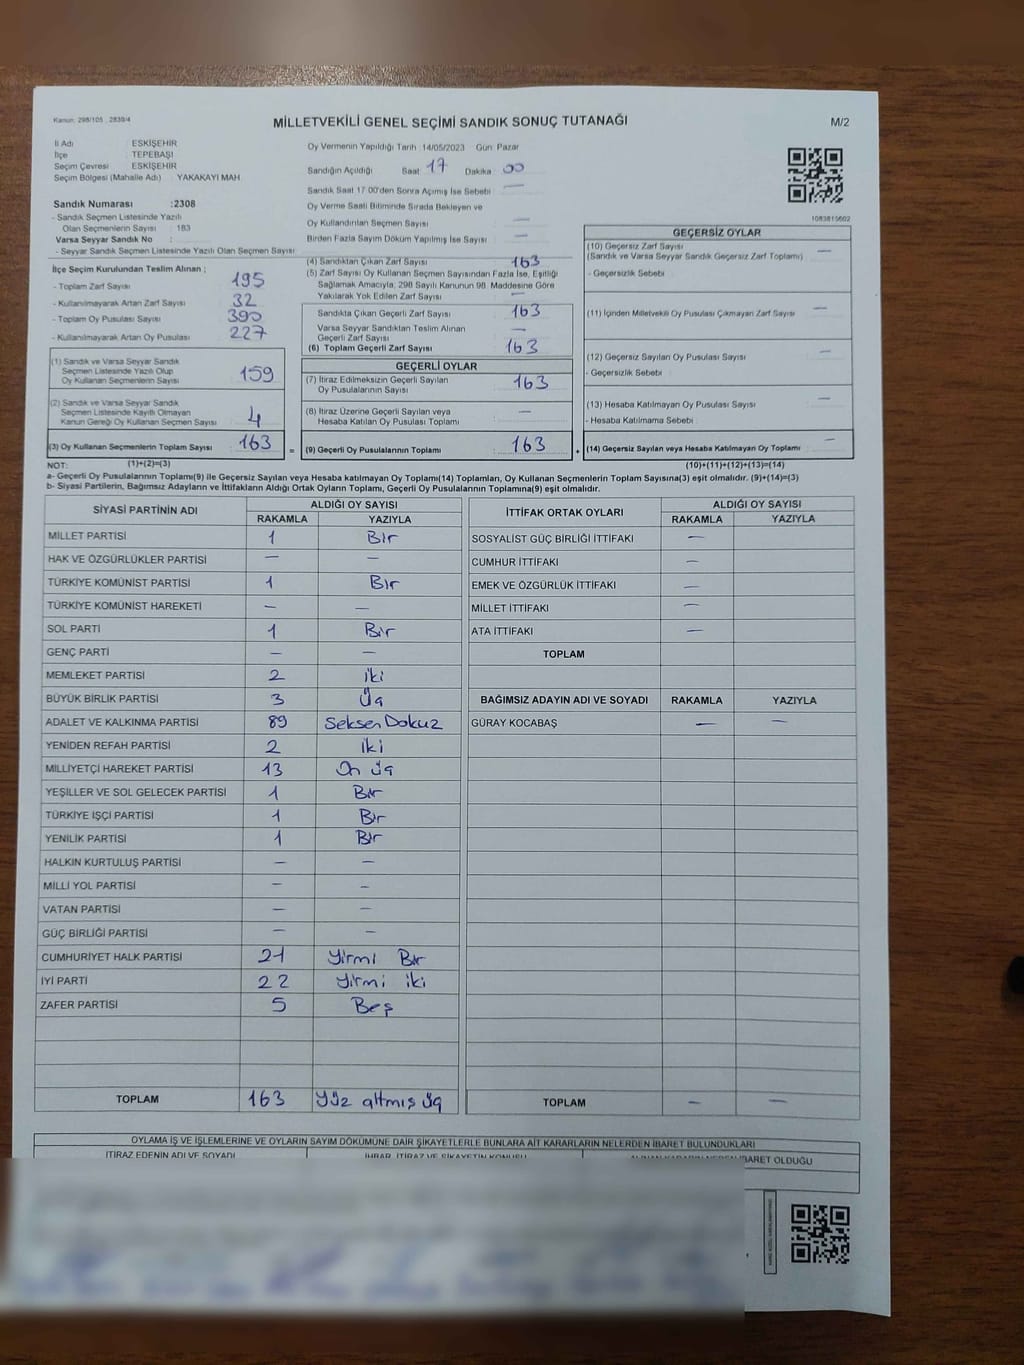 Kanun: 298/105 , 2839/4
MİLLETVEKİLİ GENEL SEÇİMİ SANDIK SONUÇ TUTANAĞI
M/2
İl Adı ESKİŞEHİR
İlçe TEPEBAŞI
Seçim Çevresi ESKİŞEHİR
Seçim Bölgesi (Mahalle Adı) YAKAKAYI MAH.
Oy Vermenin Yapıldığı Tarih 14/05/2023 Gün Pazar
Sandığın Açıldığı Saat 17 Dakika 00
Sandık Saat 17:00'den Sonra Açımış İse Sebebi —
Oy Verme Saati Bitiminde Sırada Bekleyen ve
Oy Kullandırılan Seçmen Sayısı —
Birden Fazla Sayım Döküm Yapılmış İse Sayısı —
Sandık Numarası :2308
- Sandık Seçmen Listesinde Yazılı
Olan Seçmenlerin Sayısı : 183
Varsa Seyyar Sandık No :
- Seyyar Sandık Seçmen Listesinde Yazılı Olan Seçmen Sayısı
1083810602
İlçe Seçim Kurulundan Teslim Alınan ;
- Toplam Zarf Sayısı 195
- Kullanılmayarak Artan Zarf Sayısı 32
- Toplam Oy Pusulası Sayısı 390
- Kullanılmayarak Artan Oy Pusulası 227
(1) Sandık ve Varsa Seyyar Sandık
Seçmen Listesinde Yazılı Olup
Oy Kullanan Seçmenlerin Sayısı 159
(2) Sandık ve Varsa Seyyar Sandık
Seçmen Listesinde Kayıtlı Olmayan
Kanun Gereği Oy Kullanan Seçmen Sayısı 4
(3) Oy Kullanan Seçmenlerin Toplam Sayısı 163 =
(4) Sandıktan Çıkan Zarf Sayısı 163
(5) Zarf Sayısı Oy Kullanan Seçmen Sayısından Fazla İse, Eşitliği
Sağlamak Amacıyla, 298 Sayılı Kanunun 98. Maddesine Göre
Yakılarak Yok Edilen Zarf Sayısı —
Sandıkta Çıkan Geçerli Zarf Sayısı 163
Varsa Seyyar Sandıktan Teslim Alınan
Geçerli Zarf Sayısı —
(6) Toplam Geçerli Zarf Sayısı 163
GEÇERLİ OYLAR
(7) İtiraz Edilmeksizin Geçerli Sayılan
Oy Pusulalarının Sayısı 163
(8) İtiraz Üzerine Geçerli Sayılan veya
Hesaba Katılan Oy Pusulası Toplamı —
(9) Geçerli Oy Pusulalarının Toplamı 163 +
GEÇERSİZ OYLAR
(10) Geçersiz Zarf Sayısı —
(Sandık ve Varsa Seyyar Sandık Geçersiz Zarf Toplamı)
- Geçersizlik Sebebi
(11) İçinden Milletvekili Oy Pusulası Çıkmayan Zarf Sayısı —
(12) Geçersiz Sayılan Oy Pusulası Sayısı —
- Geçersizlik Sebebi
(13) Hesaba Katılmayan Oy Pusulası Sayısı —
- Hesaba Katılmama Sebebi
(14) Geçersiz Sayılan veya Hesaba Katılmayan Oy Toplamı —
NOT: (1)+(2)=(3) (10)+(11)+(12)+(13)=(14)
a- Geçerli Oy Pusulalarının Toplamı(9) ile Geçersiz Sayılan veya Hesaba katılmayan Oy Toplamı(14) Toplamları, Oy Kullanan Seçmenlerin Toplam Sayısına(3) eşit olmalıdır. (9)+(14)=(3)
b- Siyasi Partilerin, Bağımsız Adayların ve İttifakların Aldığı Ortak Oyların Toplamı, Geçerli Oy Pusulalarının Toplamına(9) eşit olmalıdır.
SİYASİ PARTİNİN ADI ALDIĞI OY SAYISI
RAKAMLA YAZIYLA
MİLLET PARTİSİ 1 Bir
HAK VE ÖZGÜRLÜKLER PARTİSİ — —
TÜRKİYE KOMÜNİST PARTİSİ 1 Bir
TÜRKİYE KOMÜNİST HAREKETİ — —
SOL PARTİ 1 Bir
GENÇ PARTİ — —
MEMLEKET PARTİSİ 2 iki
BÜYÜK BİRLİK PARTİSİ 3 Üç
ADALET VE KALKINMA PARTİSİ 89 Seksen Dokuz
YENİDEN REFAH PARTİSİ 2 iki
MİLLİYETÇİ HAREKET PARTİSİ 13 On üç
YEŞİLLER VE SOL GELECEK PARTİSİ 1 Bir
TÜRKİYE İŞÇİ PARTİSİ 1 Bir
YENİLİK PARTİSİ 1 Bir
HALKIN KURTULUŞ PARTİSİ — —
MİLLİ YOL PARTİSİ — —
VATAN PARTİSİ — —
GÜÇ BİRLİĞİ PARTİSİ — —
CUMHURİYET HALK PARTİSİ 21 Yirmi Bir
İYİ PARTİ 22 Yirmi iki
ZAFER PARTİSİ 5 Beş
TOPLAM 163 Yüz altmış üç
İTTİFAK ORTAK OYLARI ALDIĞI OY SAYISI
RAKAMLA YAZIYLA
SOSYALİST GÜÇ BİRLİĞİ İTTİFAKI —
CUMHUR İTTİFAKI —
EMEK VE ÖZGÜRLÜK İTTİFAKI —
MİLLET İTTİFAKI —
ATA İTTİFAKI —
TOPLAM
BAĞIMSIZ ADAYIN ADI VE SOYADI RAKAMLA YAZIYLA
GÜRAY KOCABAŞ — —
TOPLAM — —
OYLAMA İŞ VE İŞLEMLERİNE VE OYLARIN SAYIM DÖKÜMÜNE DAİR ŞİKAYETLERLE BUNLARA AİT KARARLARIN NELERDEN İBARET BULUNDUKLARI
İTİRAZ EDENİN ADI VE SOYADI İHBAR, İTİRAZ VE ŞİKAYETİN KONUSU ALINAN KARARIN NEDEN İBARET OLDUĞU